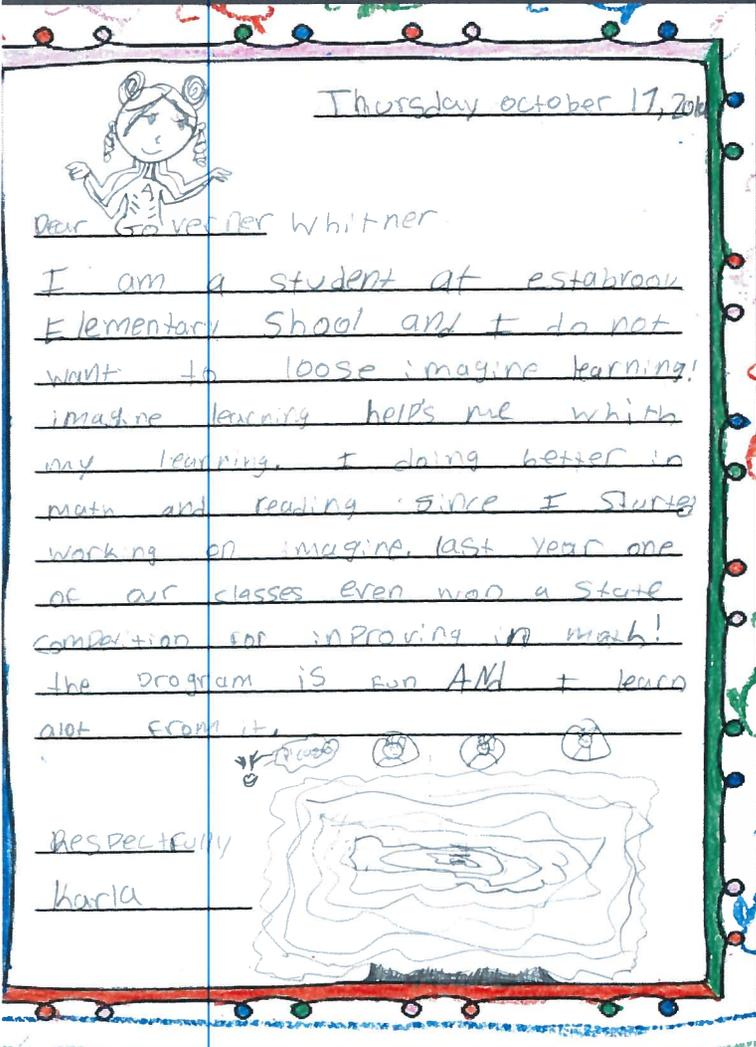 Thursday october 17,
Dear Governer Whitner
I am a student at estabrook
Elementary Shool and I do not
want to loose imagine learning!
imagine learning help's me whith
my learning. I doing better in
math and reading since I Started
working on imagine. last year one
of our classes even won a State
compatition for inproving in math!
the program is Fun AND I learn
alot From it.
Respectfully
Karla